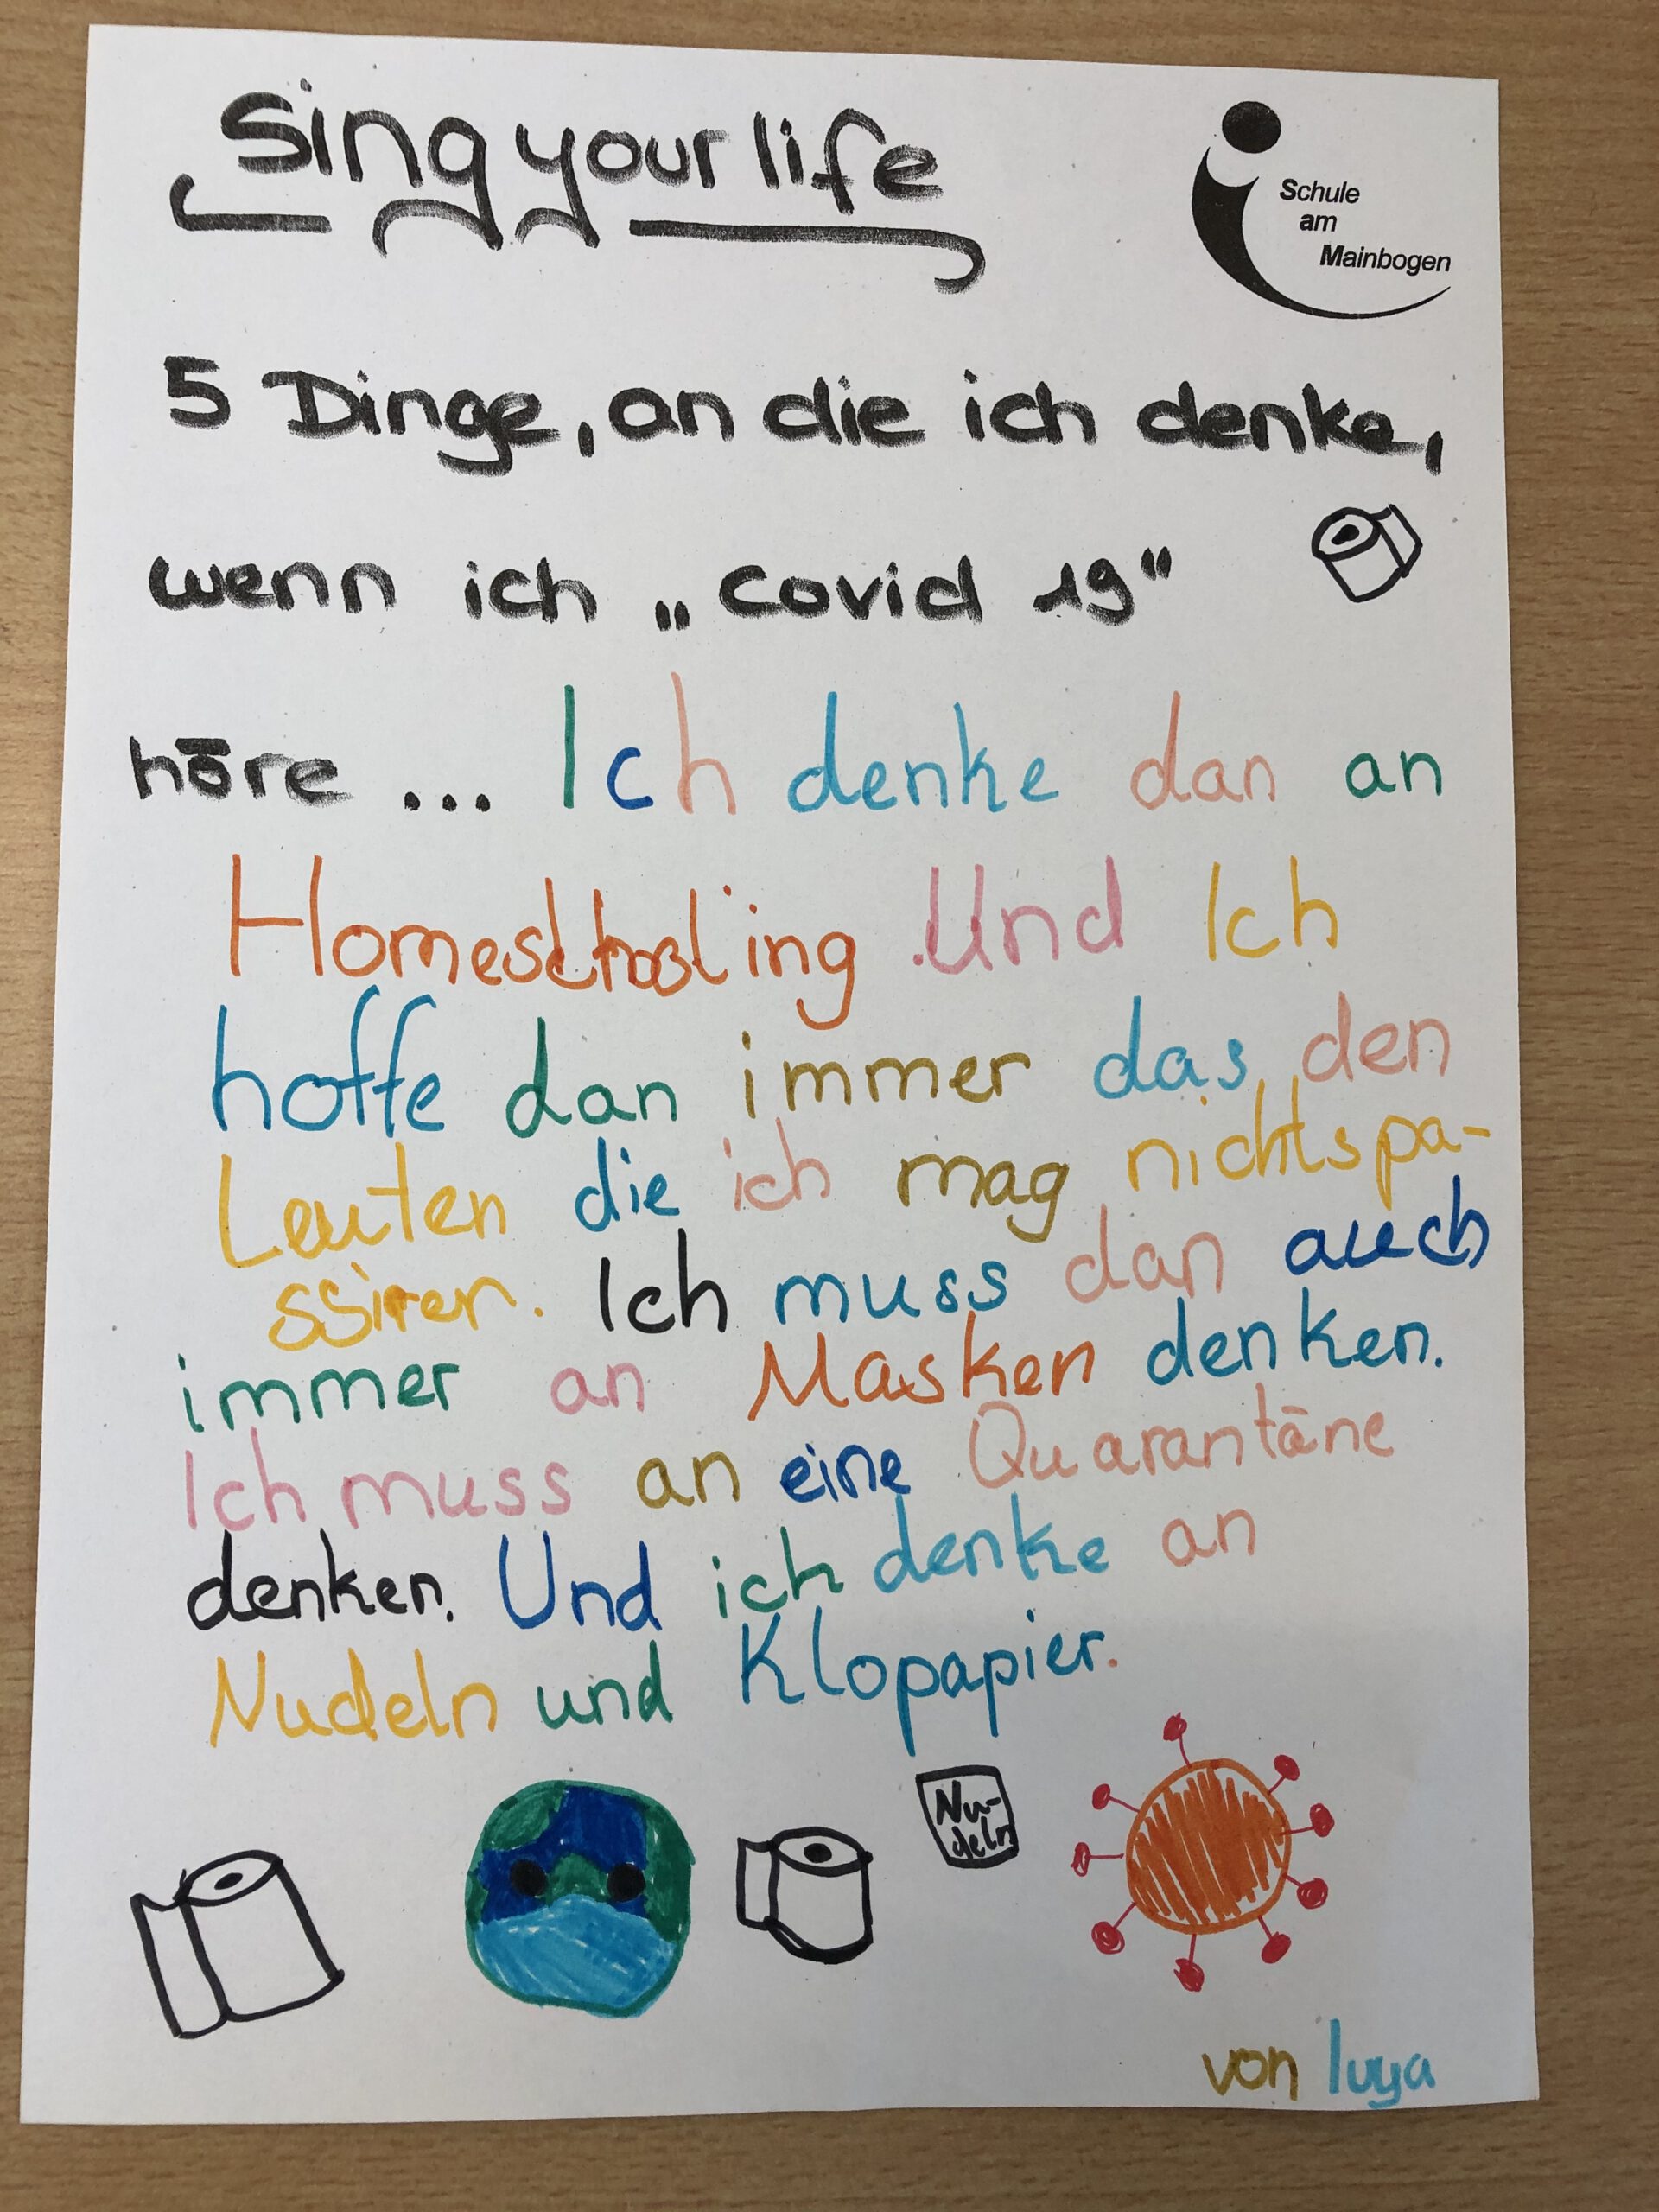 Sing your life
Schule
am
Mainbogen
5 Dinge, an die ich denke,
wenn ich „Covid 19"
höre ... Ich denke dan an
Homeschooling. Und Ich
hoffe dan immer das den
Leuten die ich mag nichts pa-
ssiren. Ich muss dan auch
immer an Masken denken.
Ich muss an eine Quarantäne
denken. Und ich denke an
Nudeln und Klopapier.
Nu-
deln
von